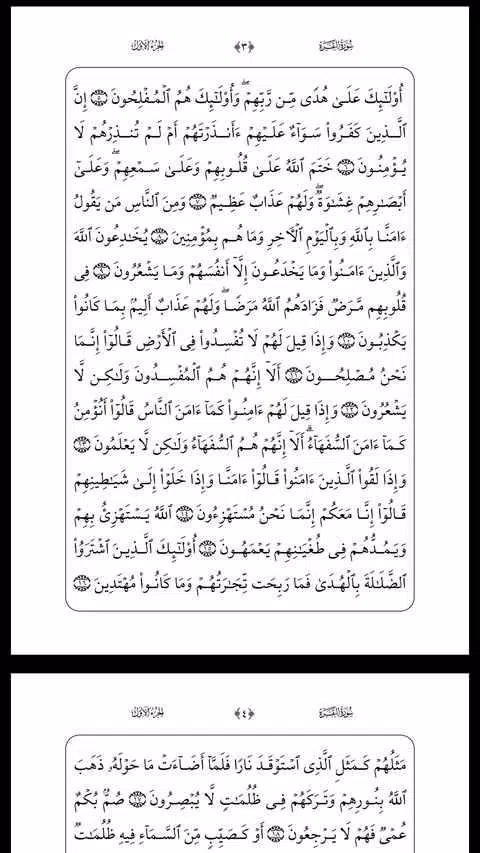 سُورَةُ البَقَرَةِ ﴿٣﴾ الجُزءُ الأوّل
أُوْلَـٰٓئِكَ عَلَىٰ هُدًى مِّن رَّبِّهِمْۖ وَأُوْلَـٰٓئِكَ هُمُ ٱلْمُفْلِحُونَ ۝٥ إِنَّ
ٱلَّذِينَ كَفَرُواْ سَوَآءٌ عَلَيْهِمْ ءَأَنذَرْتَهُمْ أَمْ لَمْ تُنذِرْهُمْ لَا
يُؤْمِنُونَ ۝٦ خَتَمَ ٱللَّهُ عَلَىٰ قُلُوبِهِمْ وَعَلَىٰ سَمْعِهِمْۖ وَعَلَىٰٓ
أَبْصَـٰرِهِمْ غِشَـٰوَةٌۖ وَلَهُمْ عَذَابٌ عَظِيمٌ ۝٧ وَمِنَ ٱلنَّاسِ مَن يَقُولُ
ءَامَنَّا بِٱللَّهِ وَبِٱلْيَوْمِ ٱلْأَخِرِ وَمَا هُم بِمُؤْمِنِينَ ۝٨ يُخَـٰدِعُونَ ٱللَّهَ
وَٱلَّذِينَ ءَامَنُواْ وَمَا يَخْدَعُونَ إِلَّآ أَنفُسَهُمْ وَمَا يَشْعُرُونَ ۝٩ فِى
قُلُوبِهِم مَّرَضٌ فَزَادَهُمُ ٱللَّهُ مَرَضًاۖ وَلَهُمْ عَذَابٌ أَلِيمٌۢ بِمَا كَانُواْ
يَكْذِبُونَ ۝١٠ وَإِذَا قِيلَ لَهُمْ لَا تُفْسِدُواْ فِى ٱلْأَرْضِ قَالُوٓاْ إِنَّمَا
نَحْنُ مُصْلِحُونَ ۝١١ أَلَآ إِنَّهُمْ هُمُ ٱلْمُفْسِدُونَ وَلَـٰكِن لَّا
يَشْعُرُونَ ۝١٢ وَإِذَا قِيلَ لَهُمْ ءَامِنُواْ كَمَآ ءَامَنَ ٱلنَّاسُ قَالُوٓاْ أَنُؤْمِنُ
كَمَآ ءَامَنَ ٱلسُّفَهَآءُۗ أَلَآ إِنَّهُمْ هُمُ ٱلسُّفَهَآءُ وَلَـٰكِن لَّا يَعْلَمُونَ ۝١٣
وَإِذَا لَقُواْ ٱلَّذِينَ ءَامَنُواْ قَالُوٓاْ ءَامَنَّا وَإِذَا خَلَوْاْ إِلَىٰ شَيَـٰطِينِهِمْ
قَالُوٓاْ إِنَّا مَعَكُمْ إِنَّمَا نَحْنُ مُسْتَهْزِءُونَ ۝١٤ ٱللَّهُ يَسْتَهْزِئُ بِهِمْ
وَيَمُدُّهُمْ فِى طُغْيَـٰنِهِمْ يَعْمَهُونَ ۝١٥ أُوْلَـٰٓئِكَ ٱلَّذِينَ ٱشْتَرَوُاْ
ٱلضَّلَـٰلَةَ بِٱلْهُدَىٰ فَمَا رَبِحَت تِّجَـٰرَتُهُمْ وَمَا كَانُواْ مُهْتَدِينَ ۝١٦
سُورَةُ البَقَرَةِ ﴿٤﴾ الجُزءُ الأوّل
مَثَلُهُمْ كَمَثَلِ ٱلَّذِى ٱسْتَوْقَدَ نَارًا فَلَمَّآ أَضَآءَتْ مَا حَوْلَهُۥ ذَهَبَ
ٱللَّهُ بِنُورِهِمْ وَتَرَكَهُمْ فِى ظُلُمَـٰتٍ لَّا يُبْصِرُونَ ۝١٧ صُمٌّۢ بُكْمٌ
عُمْىٌ فَهُمْ لَا يَرْجِعُونَ ۝١٨ أَوْ كَصَيِّبٍ مِّنَ ٱلسَّمَآءِ فِيهِ ظُلُمَـٰتٌ